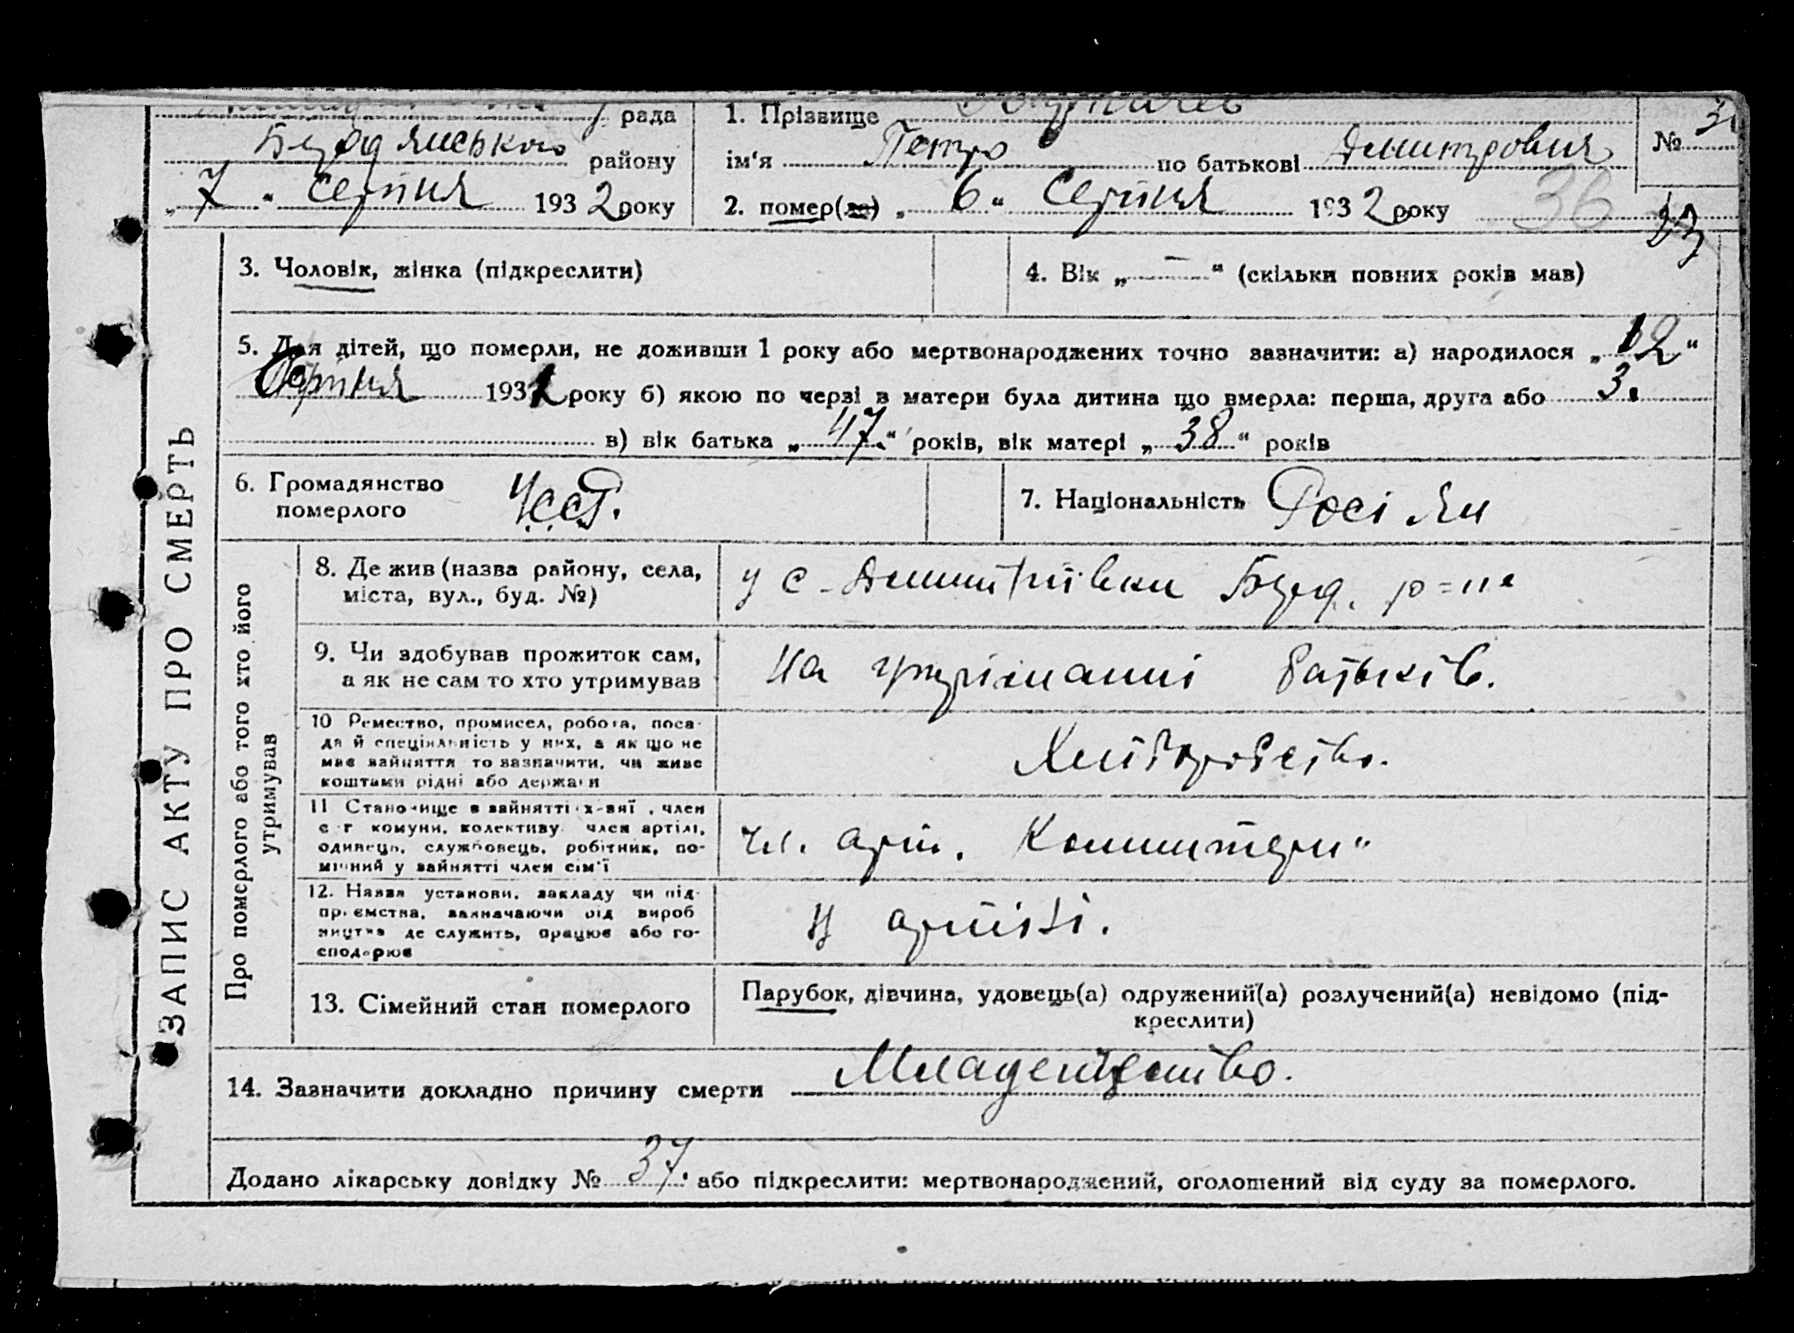 рада 1. Прізвище
Бердянського району ім'я Петро по батькові Дмитрович №
„ 7 “ Серпня 1932 року 2. помер(ла) „ 6 “ Серпня 1932 року 36
3. Чоловік, жінка (підкреслити) 4. Вік „ — “ (скільки повних років мав)
5. Для дітей, що померли, не доживши 1 року або мертвонароджених точно зазначити: а) народилося „ 12 “
Серпня 1931 року б) якою по черзі в матери була дитина що вмерла: перша, друга або 3.
в) вік батька „ 47 “ років, вік матері „ 38 “ років
6. Громадянство померлого УССР. 7. Національність Росіян
ЗАПИС АКТУ ПРО СМЕРТЬ
Про померлого або того хто його утримував
8. Де жив (назва району, села,
міста, вул., буд. №) у с. Дмитрівки Берд. р-на
9. Чи здобував прожиток сам,
а як не сам то хто утримував На утріманні батьків.
10 Ремество, промисел, робота, поса-
да й спеціяльність у них, а як що не
має зайняття то зазначити, чи живе
коштами рідні або держави Хліборобство.
11 Становище в зайнятті , член
с г комуни, колективу член артілі,
одинець, службовець, робітник, по-
мічний у зайнятті член сім'ї чл. арт. Коминтерн"
12. Назва установи, закладу чи під-
приємства, зазначаючи рід вироб
ництва де служить, працює або го-
сподарює У артілі.
13. Сімейний стан померлого Парубок, дівчина, удовець(а) одружений(а) розлучений(а) невідомо (під-
креслити)
14. Зазначити докладно причину смерти Младенчество.
Додано лікарську довідку № 37. або підкреслити: мертвонароджений, оголошений від суду за померлого.